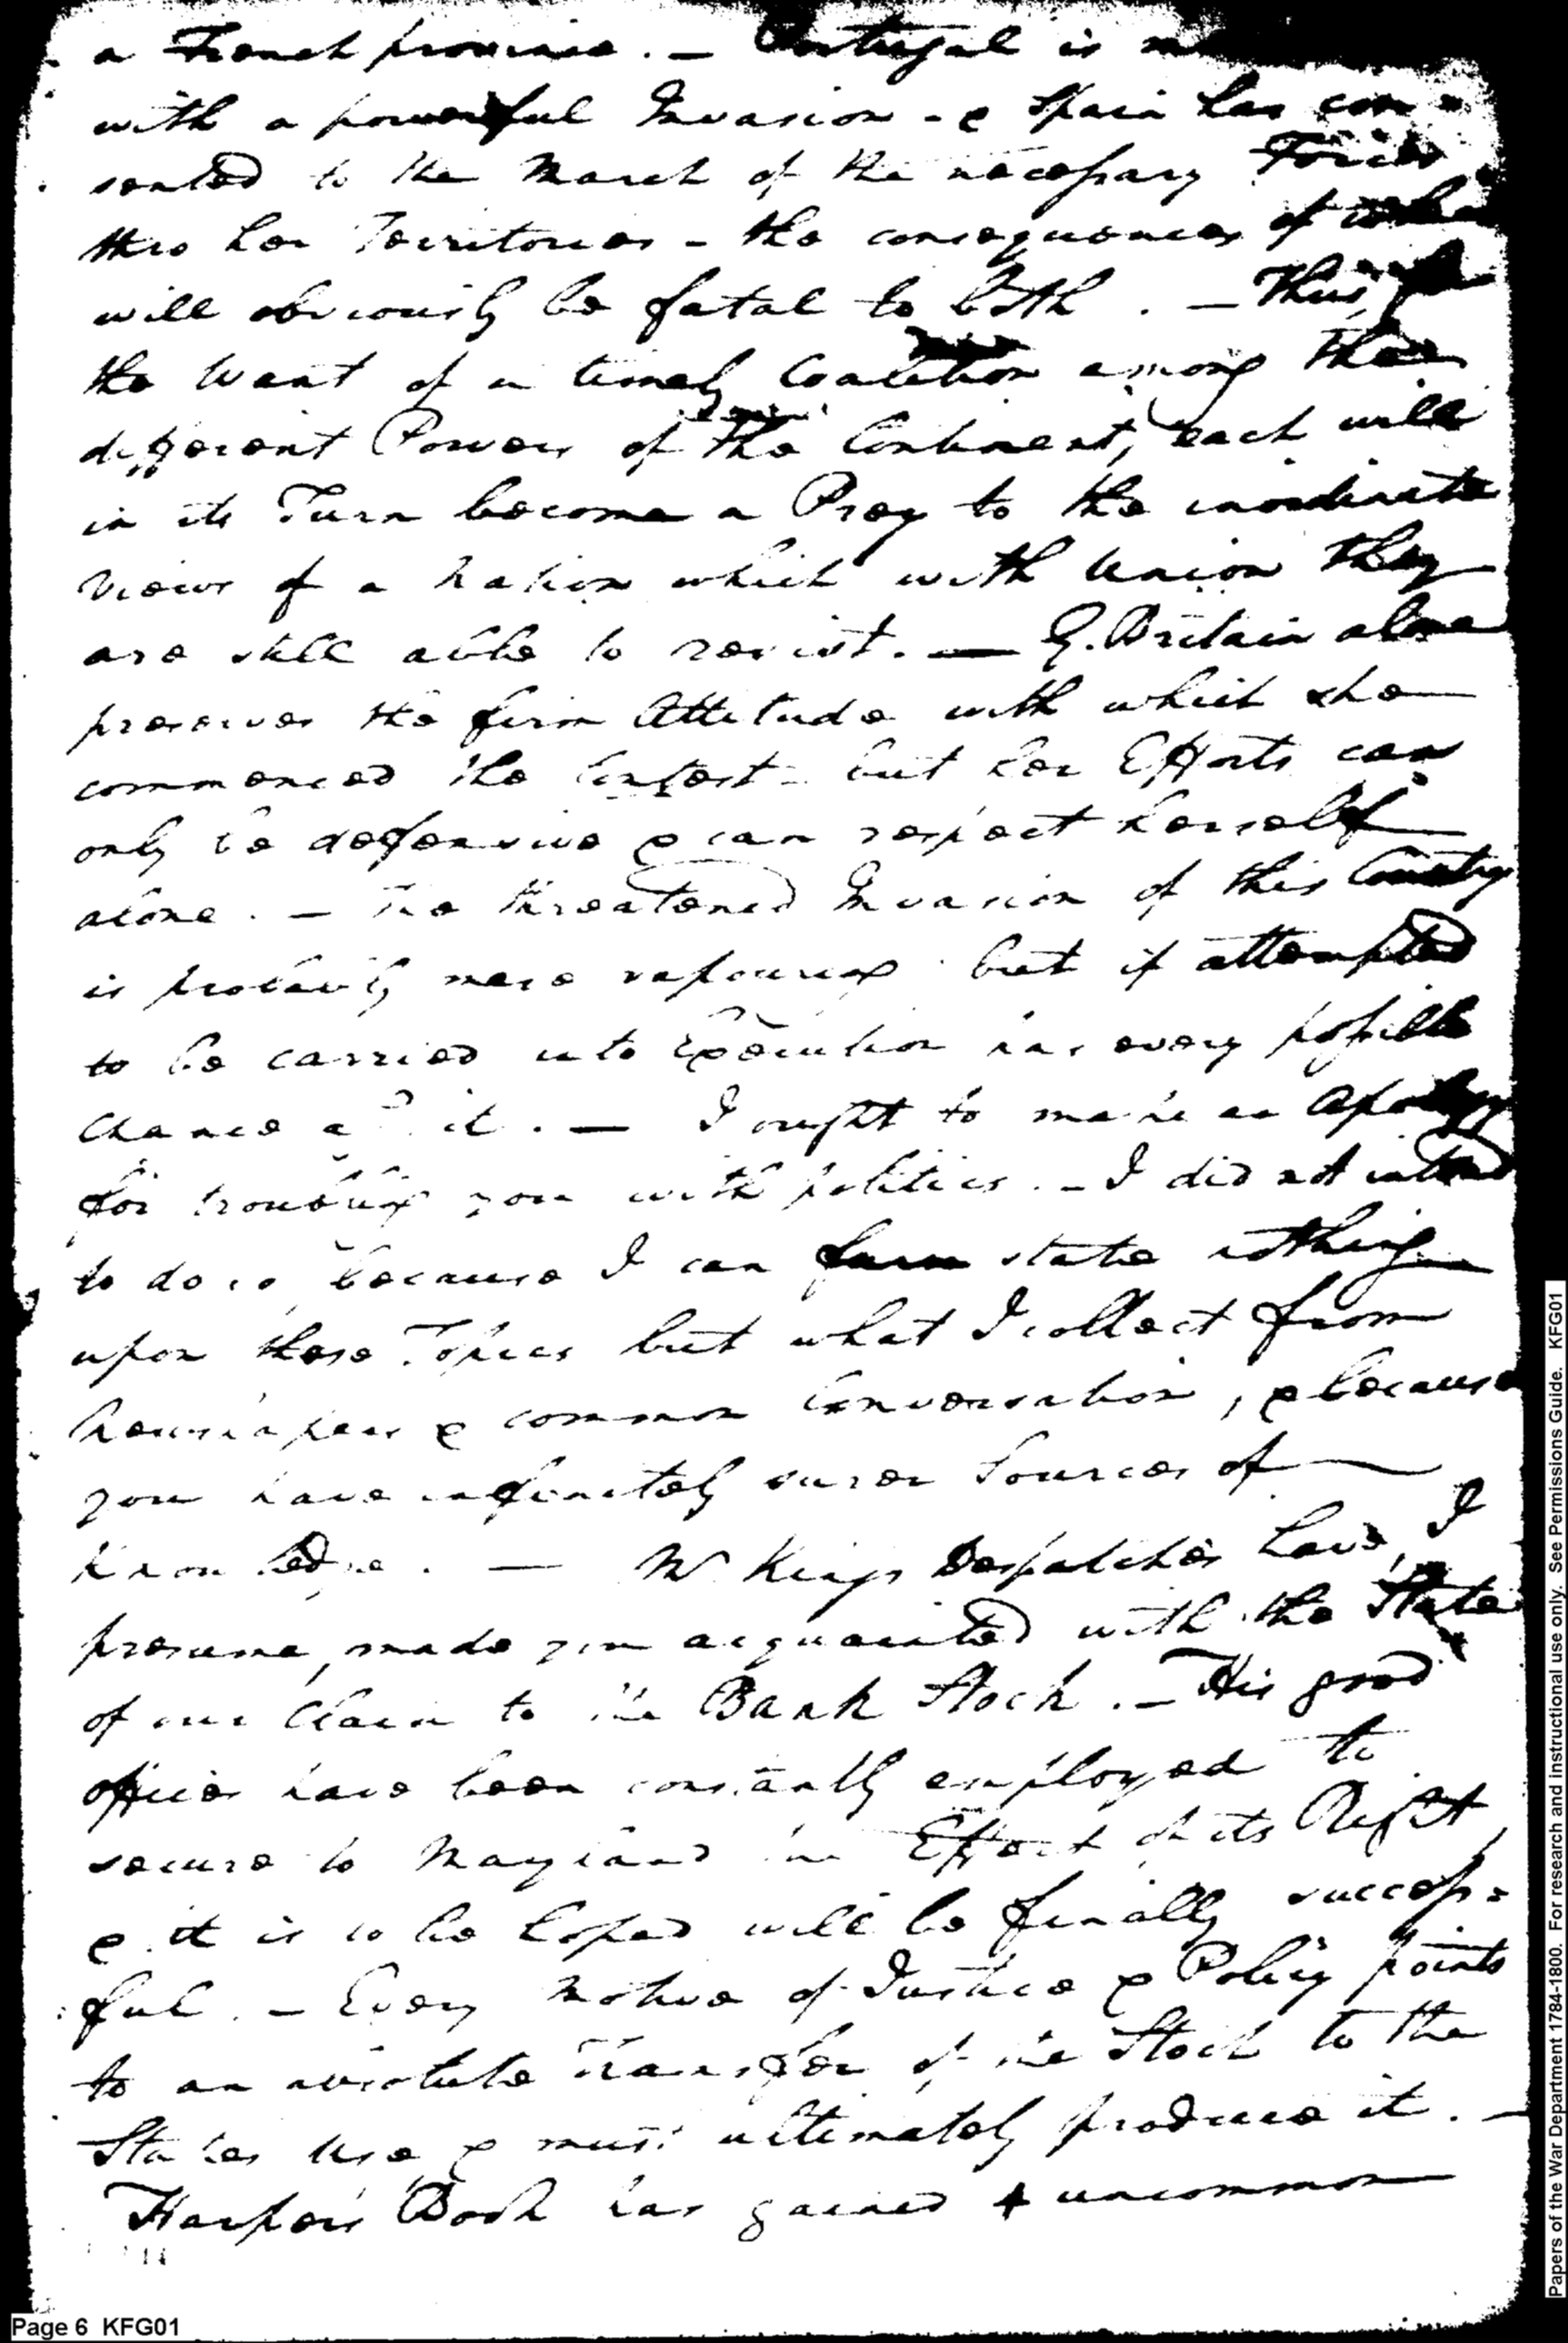 a French province. — Portugal is
with a powerful Invasion - & Spain has con=
sented to the March of the necessary Forces
thro her Territories - the consequences of
will obviously be fatal to both. — Thus,
the Want of a timely Coalition among the
different Powers of the Continent, each will
in its Turn become a Prey to the inordinate
views of a Nation which with Union they
are still able to resist. — G. Britain alone
preserves the firm Attitude with which she
commenced the Contest - but her Efforts can
only be defensive & can respect herself
alone. — The threatened Invasion of this Country
is probably mere vapouring but if attempted
to be carried into Execution has every possible
chance it. — I ought to make an Apology
for troubling you with politics. — I did not intend
to do so, because I can state nothing
upon these Topics but what I collect from
Newspapers & common Conversation, & because
you have infinitely surer Sources of
Knowledge. — Mr Kings Despatches have, I
presume, made you acquainted with the State
of our Claim to the Bank Stock. — His good
offices have been constantly employed to
secure to Maryland the Effect of its Right,
& it is to be hoped will be finally success=
:ful. — Every motive of Justice & Policy points
to an absolute Transfer of the Stock to the
States Use & must ultimately produce it. —
Harper's Book has gained uncommon
Page 6 KFG01
Papers of the War Department 1784-1800. For research and instructional use only. See Permissions Guide. KFG01